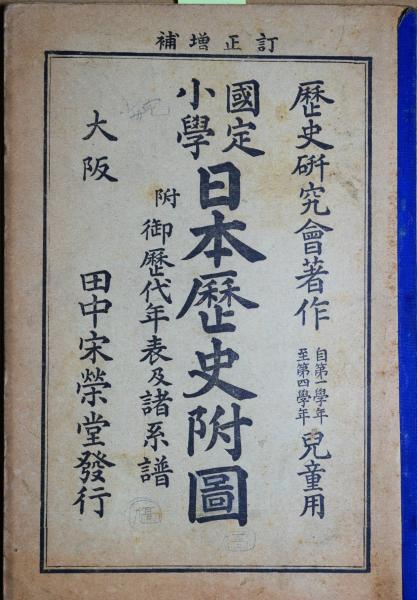 訂正增補
歷史硏究會著作
自第一學年
至第四學年
兒童用
國定
小學
日本歷史附圖
附
御歷代年表及諸系譜
大阪
田中宋榮堂發行